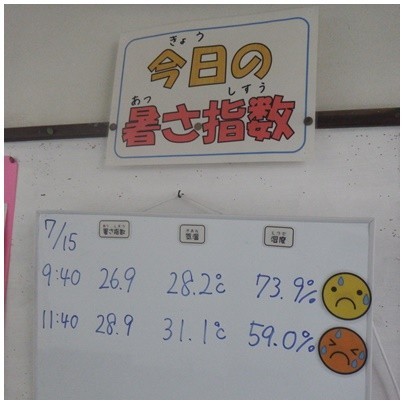 きょう
今日の
あつ しすう
暑さ指数
7/15 暑さ指数 気温 湿度
9:40 26.9 28.2℃ 73.9%
11:40 28.9 31.1℃ 59.0%